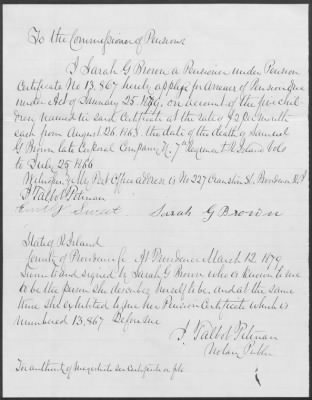 To the Commissioner of Pensions
I Sarah G Brown a Pensioner under Pension
Certificate No 13.867 hereby apply for arrears of Pension due
under Act of January 25 1879, on account of the five child
ren named in said Certificate at the rate of $2 per month
each from August 26 1863 the date of the death of Samuel
G Brown late Corporal Company K, 7th Regiment R Island Vols
to July 25 1866
Witness My Post Office address is No 227 Cranston St, Providence R I
J. Talbot Pitman
Sweet Sarah G Brown
State of R Island
County of Providence sc At Providence March 12, 1879
Sworn to and signed by Sarah G Brown who is known to me
to be the person she describes herself to be, and at the same
time she exhibited to me her Pension Certificate which is
numbered 13,867 Before me
J. Talbot Pitman
Notary Public
For authority of Magistrate see Certificate on file